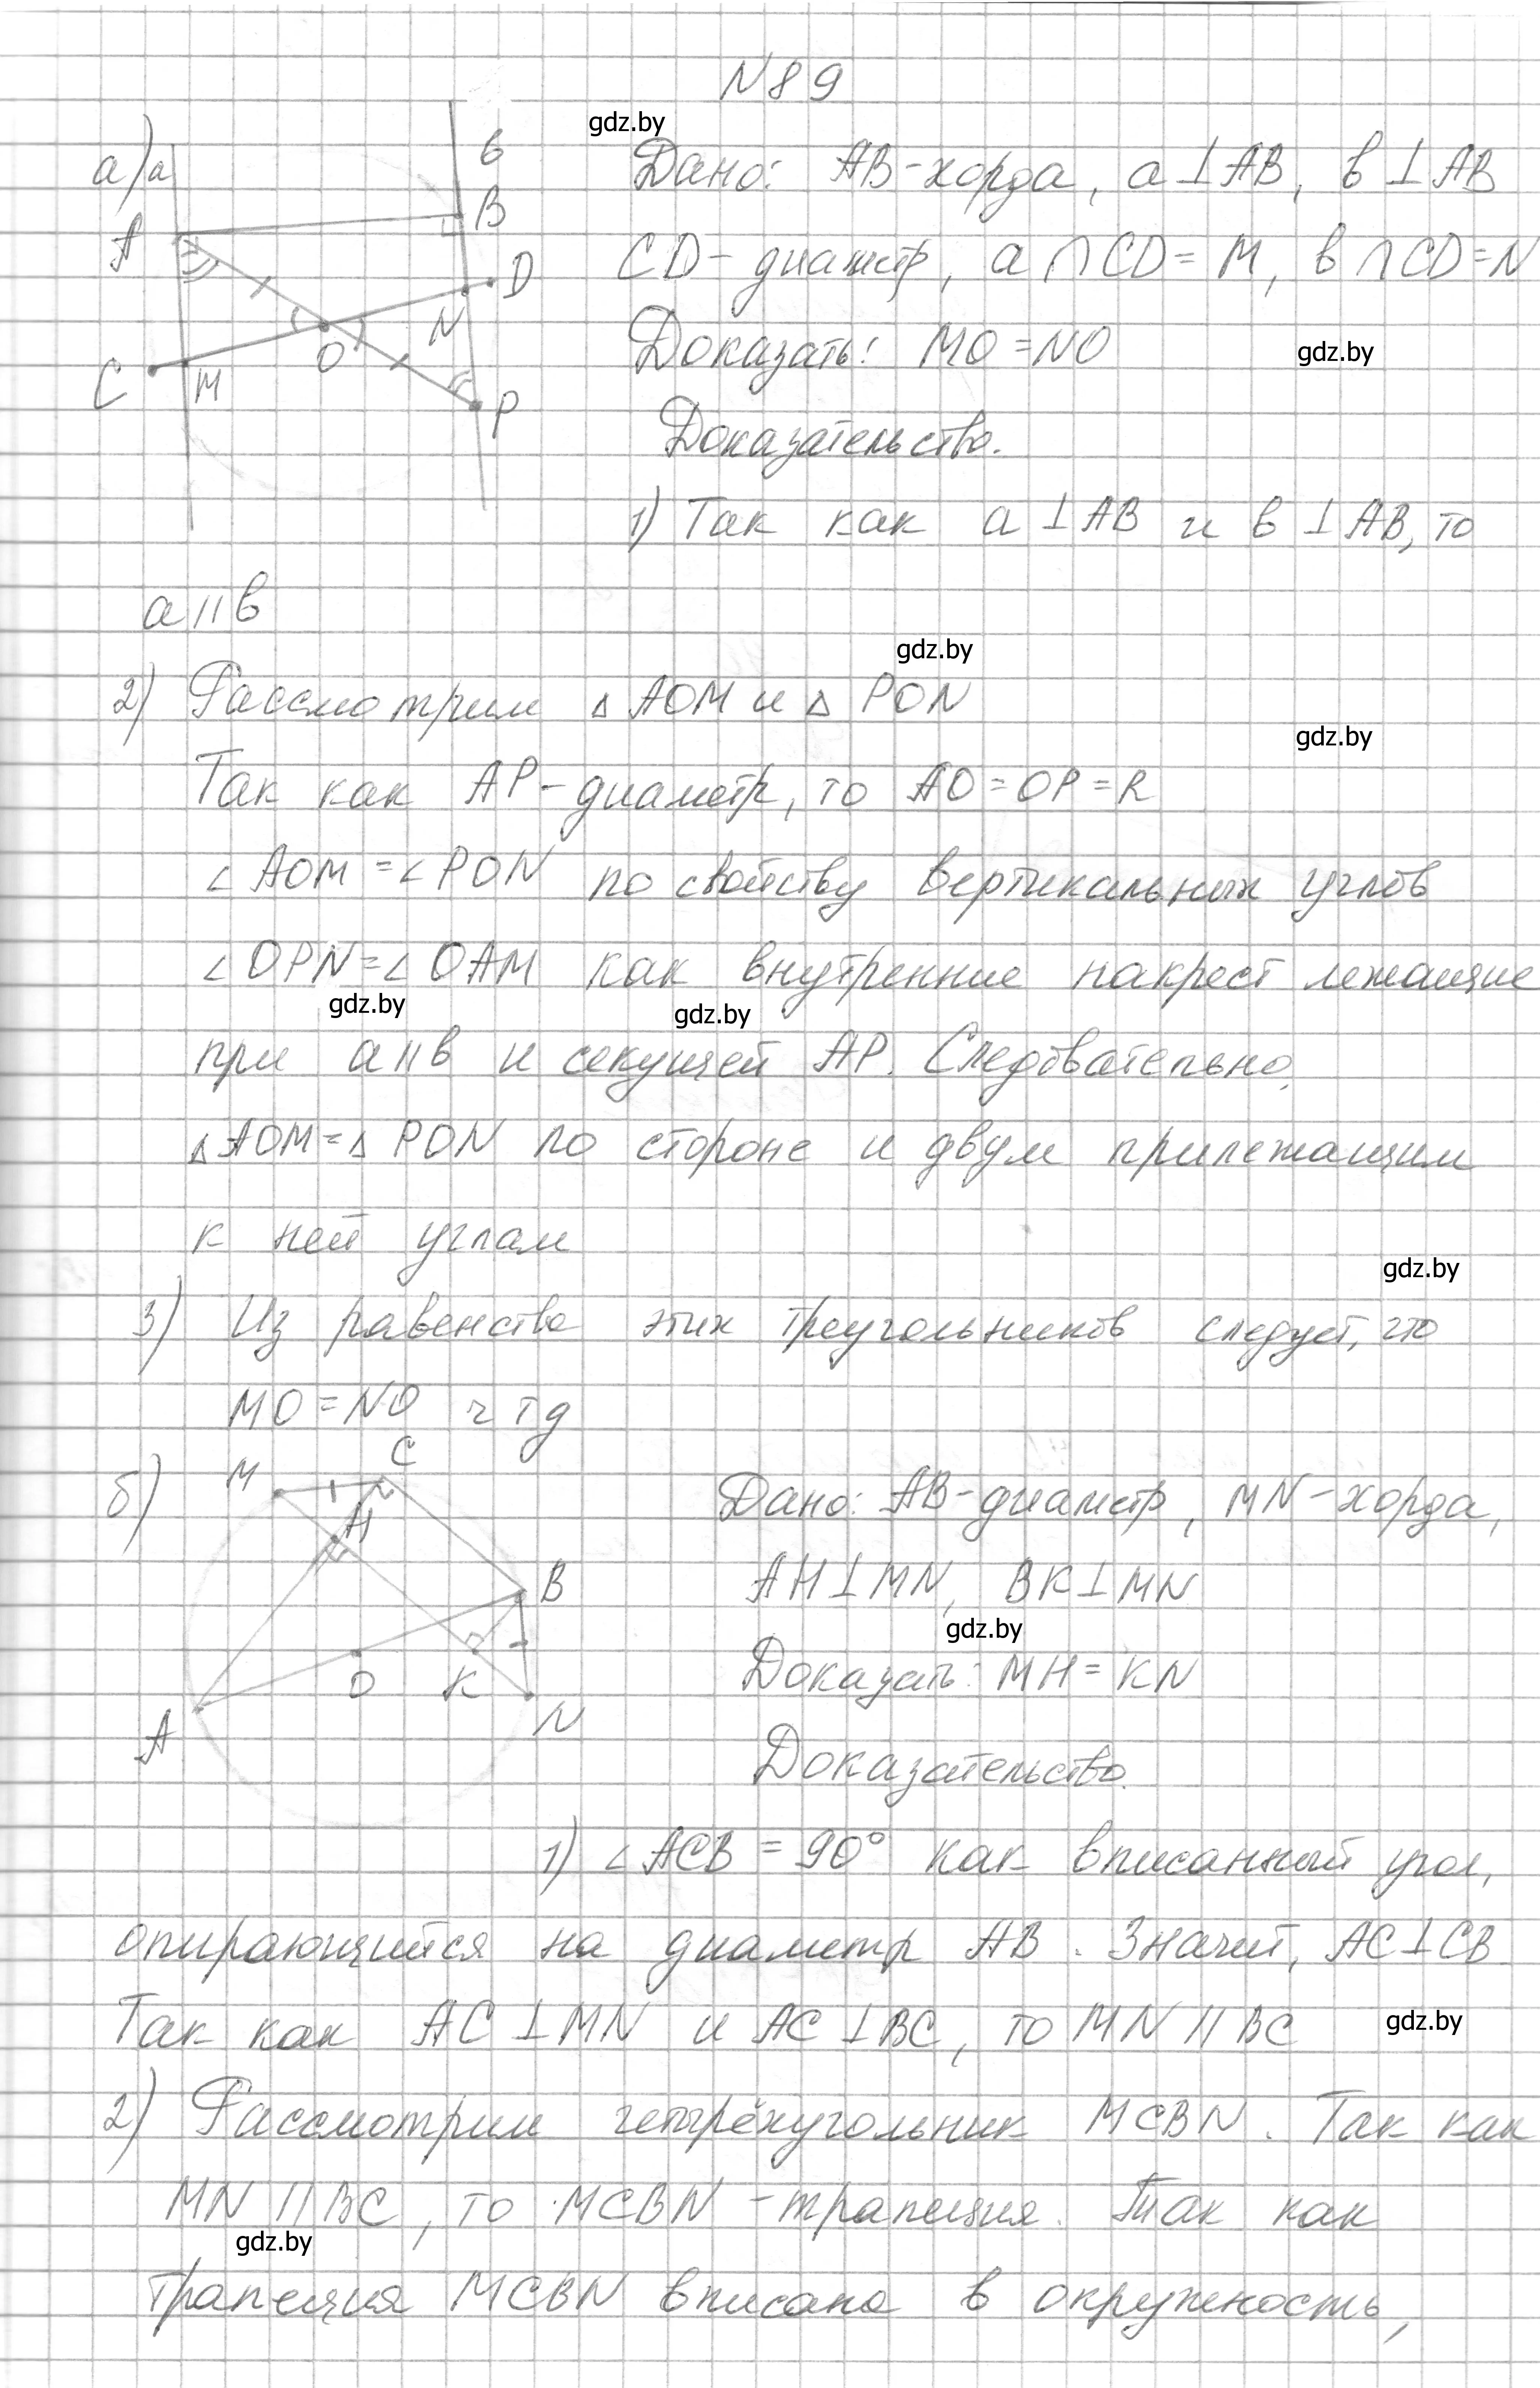 N89
gdz.by
а) a b
A B D N O C M P
Дано: AB-хорда, a⊥AB, в⊥AB
CD- диаметр, a∩CD=M, в∩CD=N
Доказать: MO=NO
gdz.by
Доказательство.
1) Так как a⊥AB и в⊥AB, то
a||в
gdz.by
2) Рассмотрим △AOM и △PON
gdz.by
Так как AP-диаметр, то AO=OP=R
∠AOM=∠PON по свойству вертикальных углов
∠OPN=∠OAM как внутренние накрест лежащие
gdz.by gdz.by
при a||в и секущей AP. Следовательно,
△AOM=△PON по стороне и двум прилежащим
к ней углам
gdz.by
3) Из равенства этих треугольников следует, что
MO=NO чтд
б)
M C H B O K N A
Дано: AB-диаметр, MN-хорда,
AH⊥MN, BK⊥MN
gdz.by
Доказать: MH=KN
Доказательство.
1) ∠ACB=90° как вписанный угол,
опирающийся на диаметр AB. Значит, AC⊥CB
Так как AC⊥MN и AC⊥BC, то MN||BC
gdz.by
2) Рассмотрим четырёхугольник MCBN. Так как
MN||BC, то MCBN-трапеция. Так как
gdz.by
трапеция MCBN вписана в окружность,